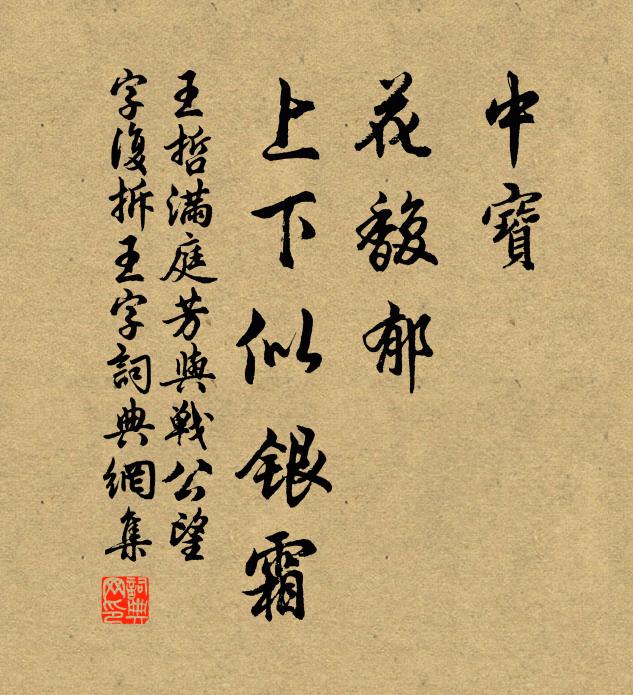 中寶
花馥郁
上下似銀霜
王哲滿庭芳與戰公望
字復拆王字詞典網集
詞典网印